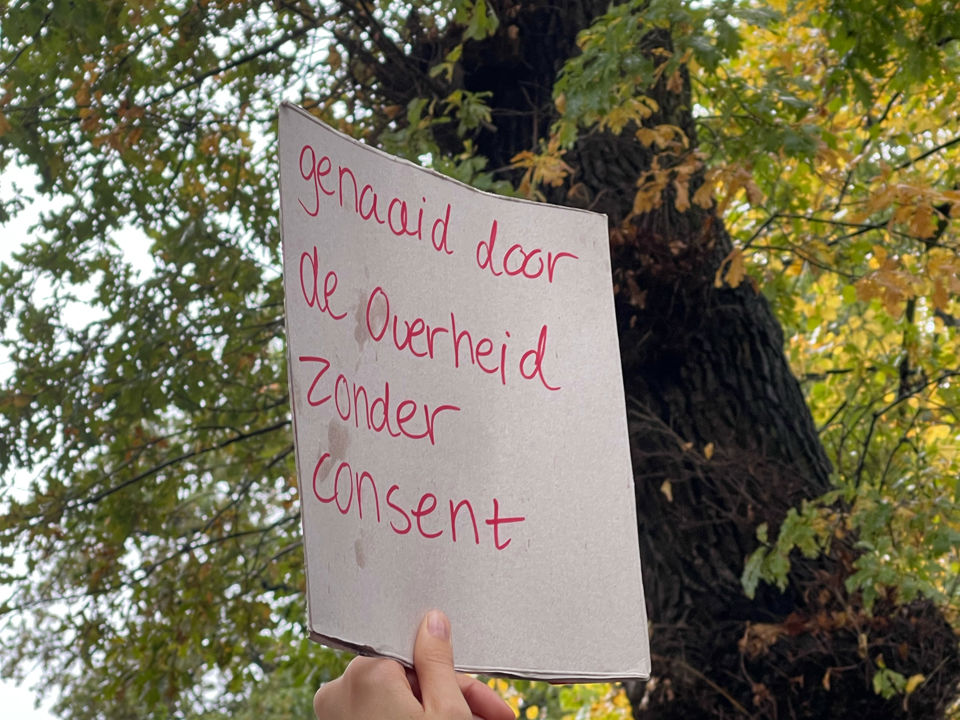 genaaid door
de Overheid
zonder
consent